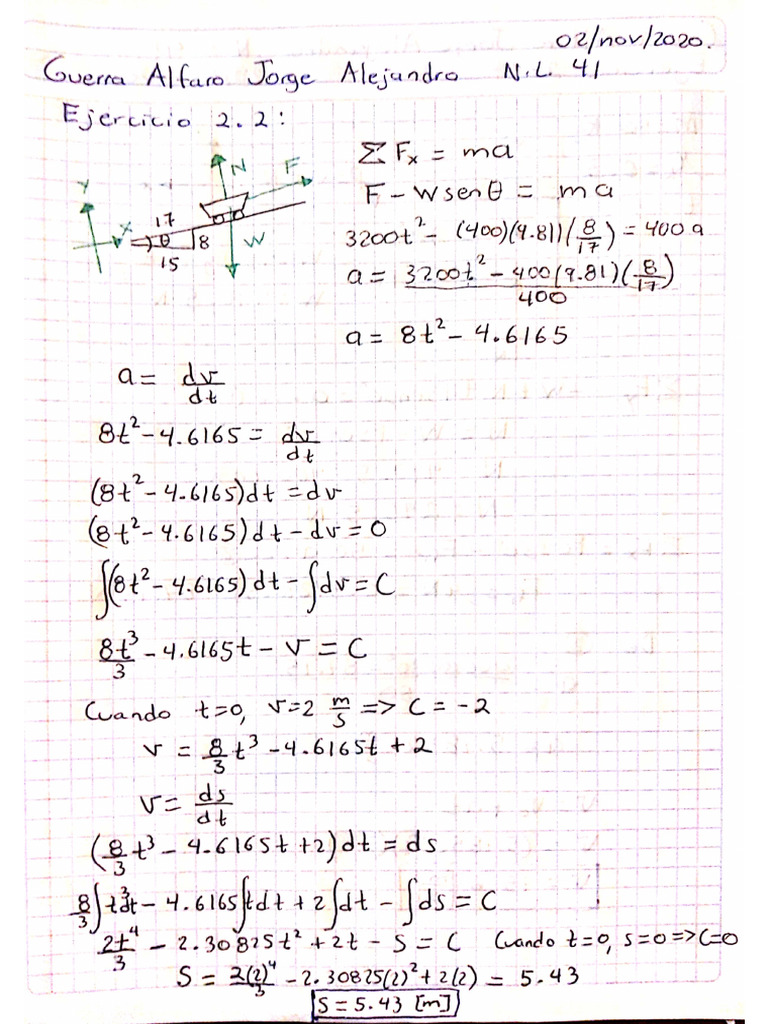 02/nov/2020.
Guerra Alfaro Jorge Alejandro N.L. 41
Ejercicio 2.2:
Y
X
N
F
W
17
θ
8
15
Σ Fx = ma
F - W senθ = ma
3200t² - (400)(9.81)(8/17) = 400 a
a = 3200t² - 400(9.81)(8/17) / 400
a = 8t² - 4.6165
a = dv/dt
8t² - 4.6165 = dv/dt
(8t² - 4.6165)dt = dv
(8t² - 4.6165)dt - dv = 0
∫(8t² - 4.6165)dt - ∫dv = C
8t³/3 - 4.6165t - v = C
Cuando t=0, v=2 m/s => C = -2
v = 8/3 t³ - 4.6165t + 2
v = ds/dt
(8/3 t³ - 4.6165t + 2)dt = ds
8/3 ∫t³dt - 4.6165∫tdt + 2∫dt - ∫ds = C
2t⁴/3 - 2.30825t² + 2t - S = C Cuando t=0, s=0 => C=0
S = 2(2)⁴/3 - 2.30825(2)² + 2(2) = 5.43
S = 5.43 [m]